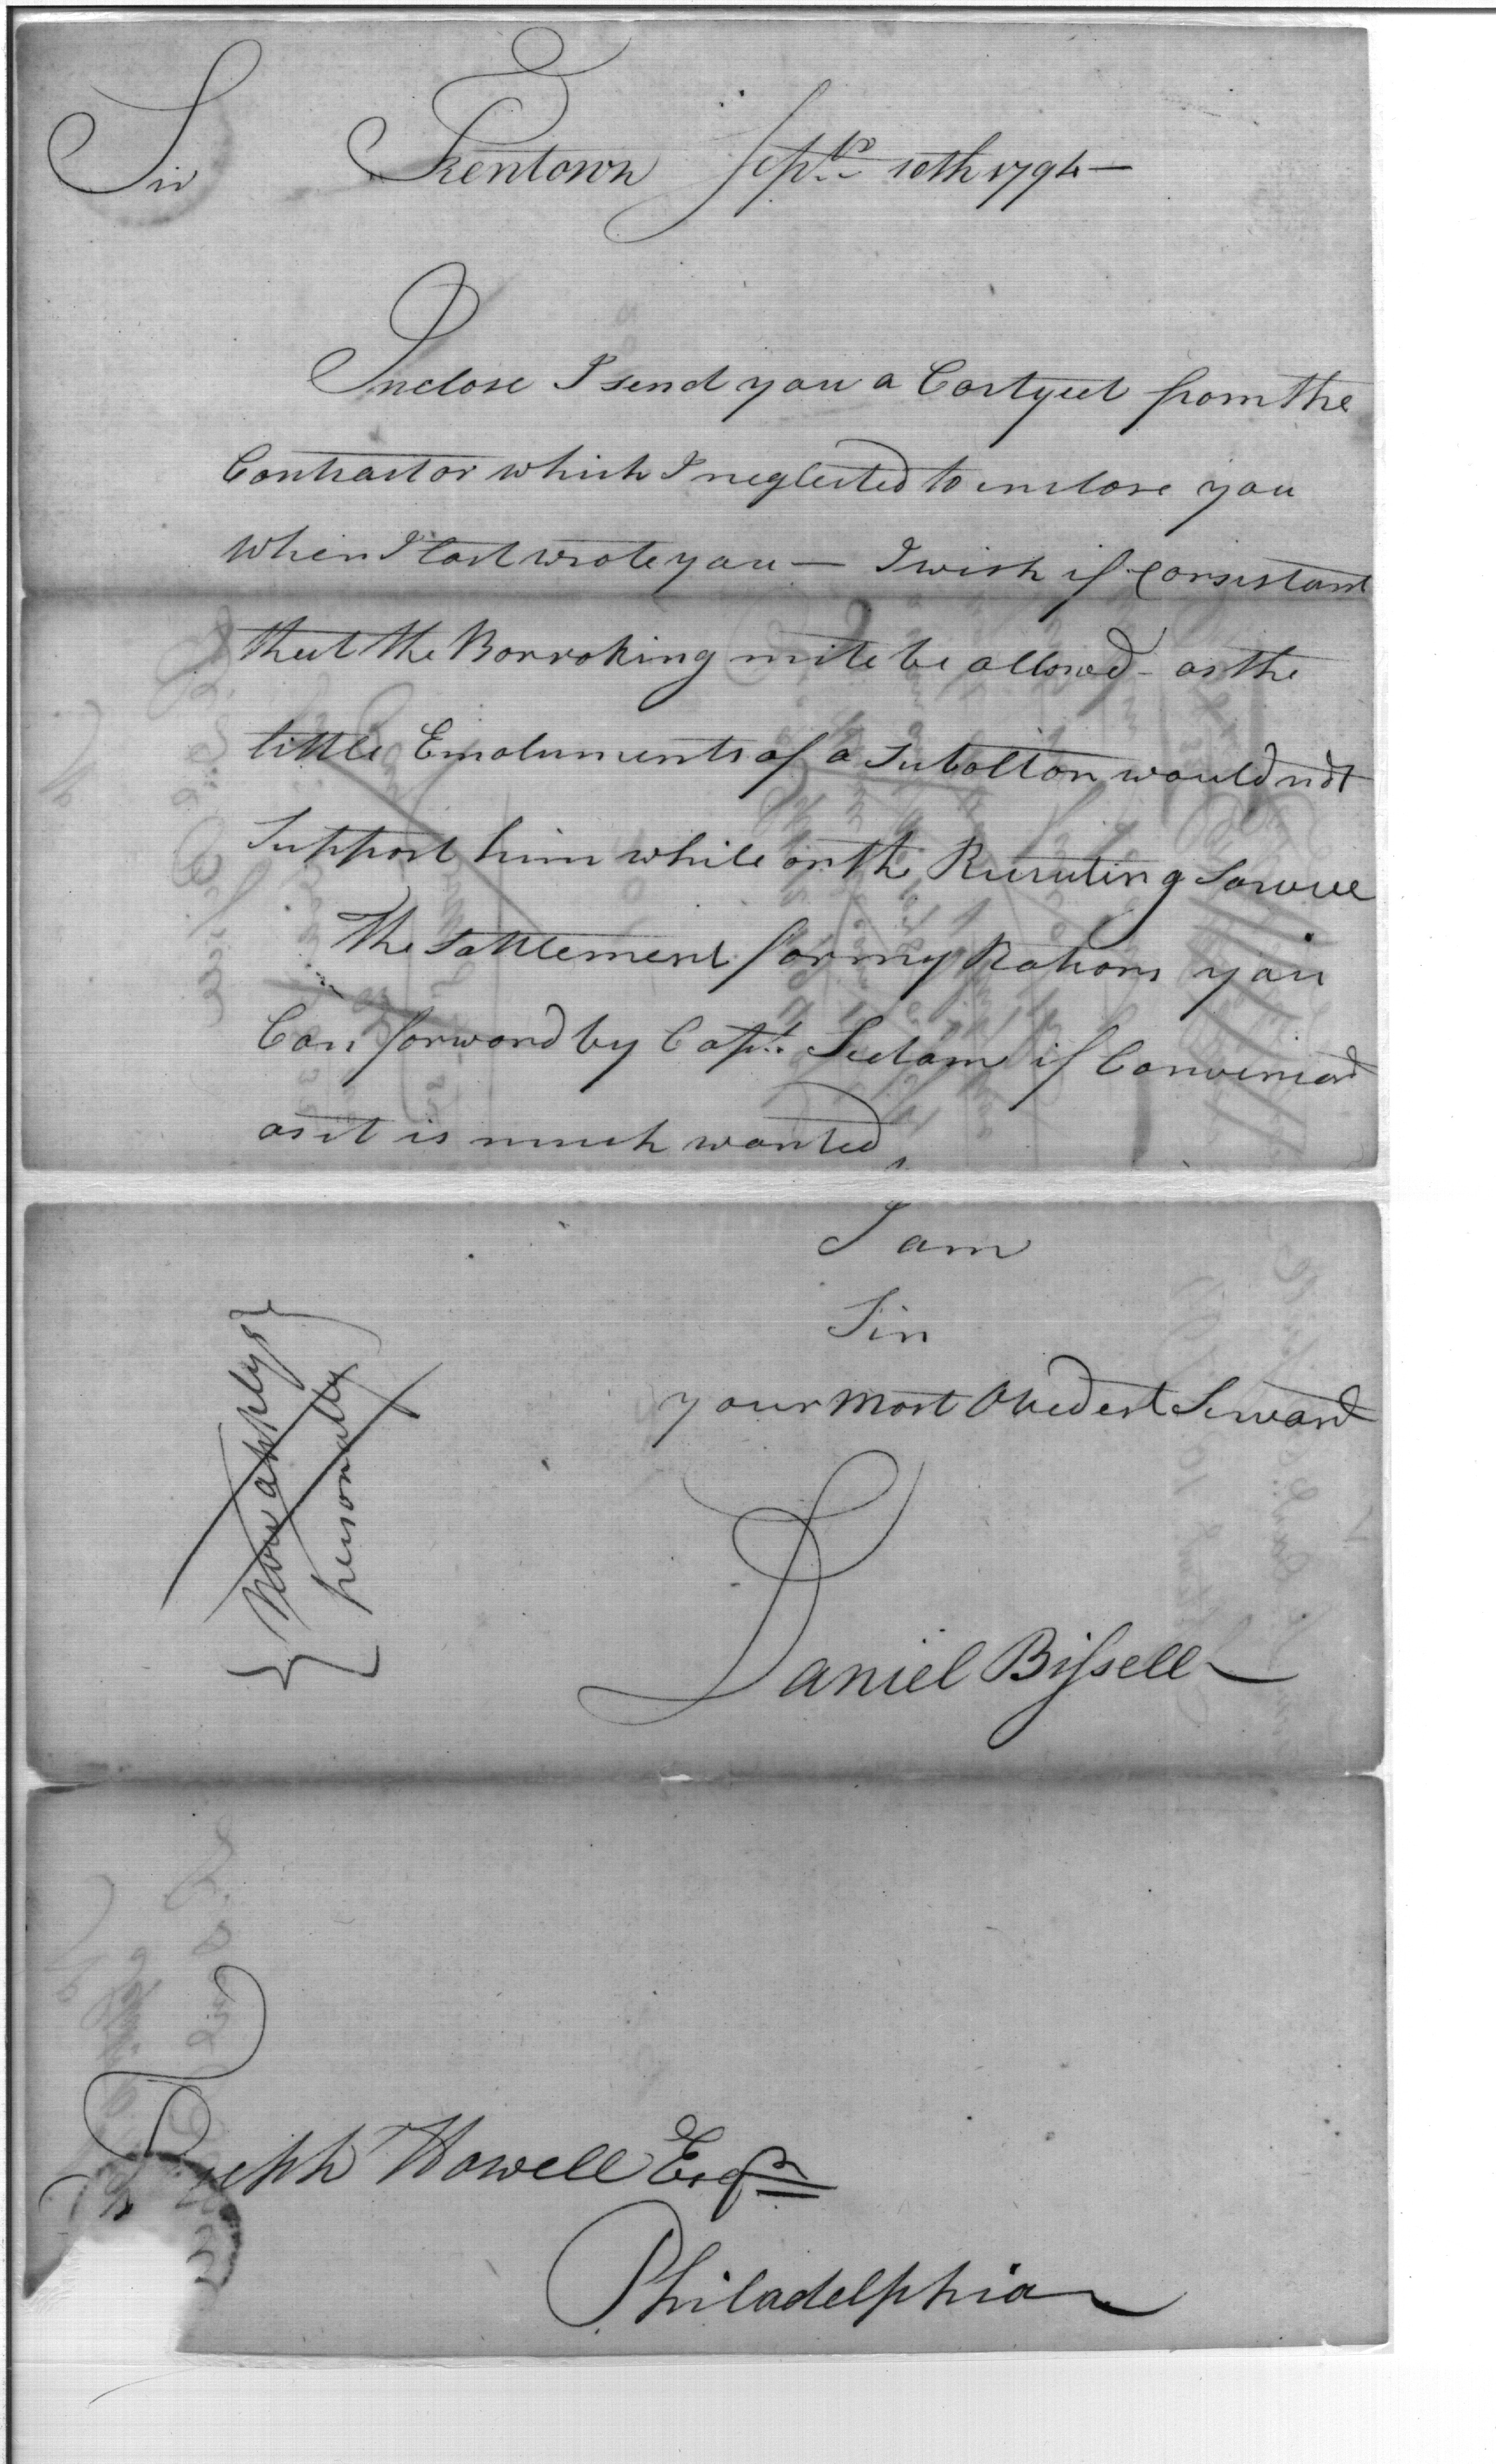 Sir Trentown Septr 10th 1794 —
Inclose I send you a Certyect from the
Contractor which I neglected to inclose you
when I last wrote you — I wish if Consistant
that the Barroking mite be allowed - as the
little Emoluments of a Subaltorn would not
Support him while on the Recruting Service
The Settlement for my Rations you
Can forward by Capt. Sedam if Convenient
as it is much wanted
I am
Sir
your Most Obedent Servant
Daniel Bissell
Now applys
personally
Joseph Howell Esqr
Philadelphia